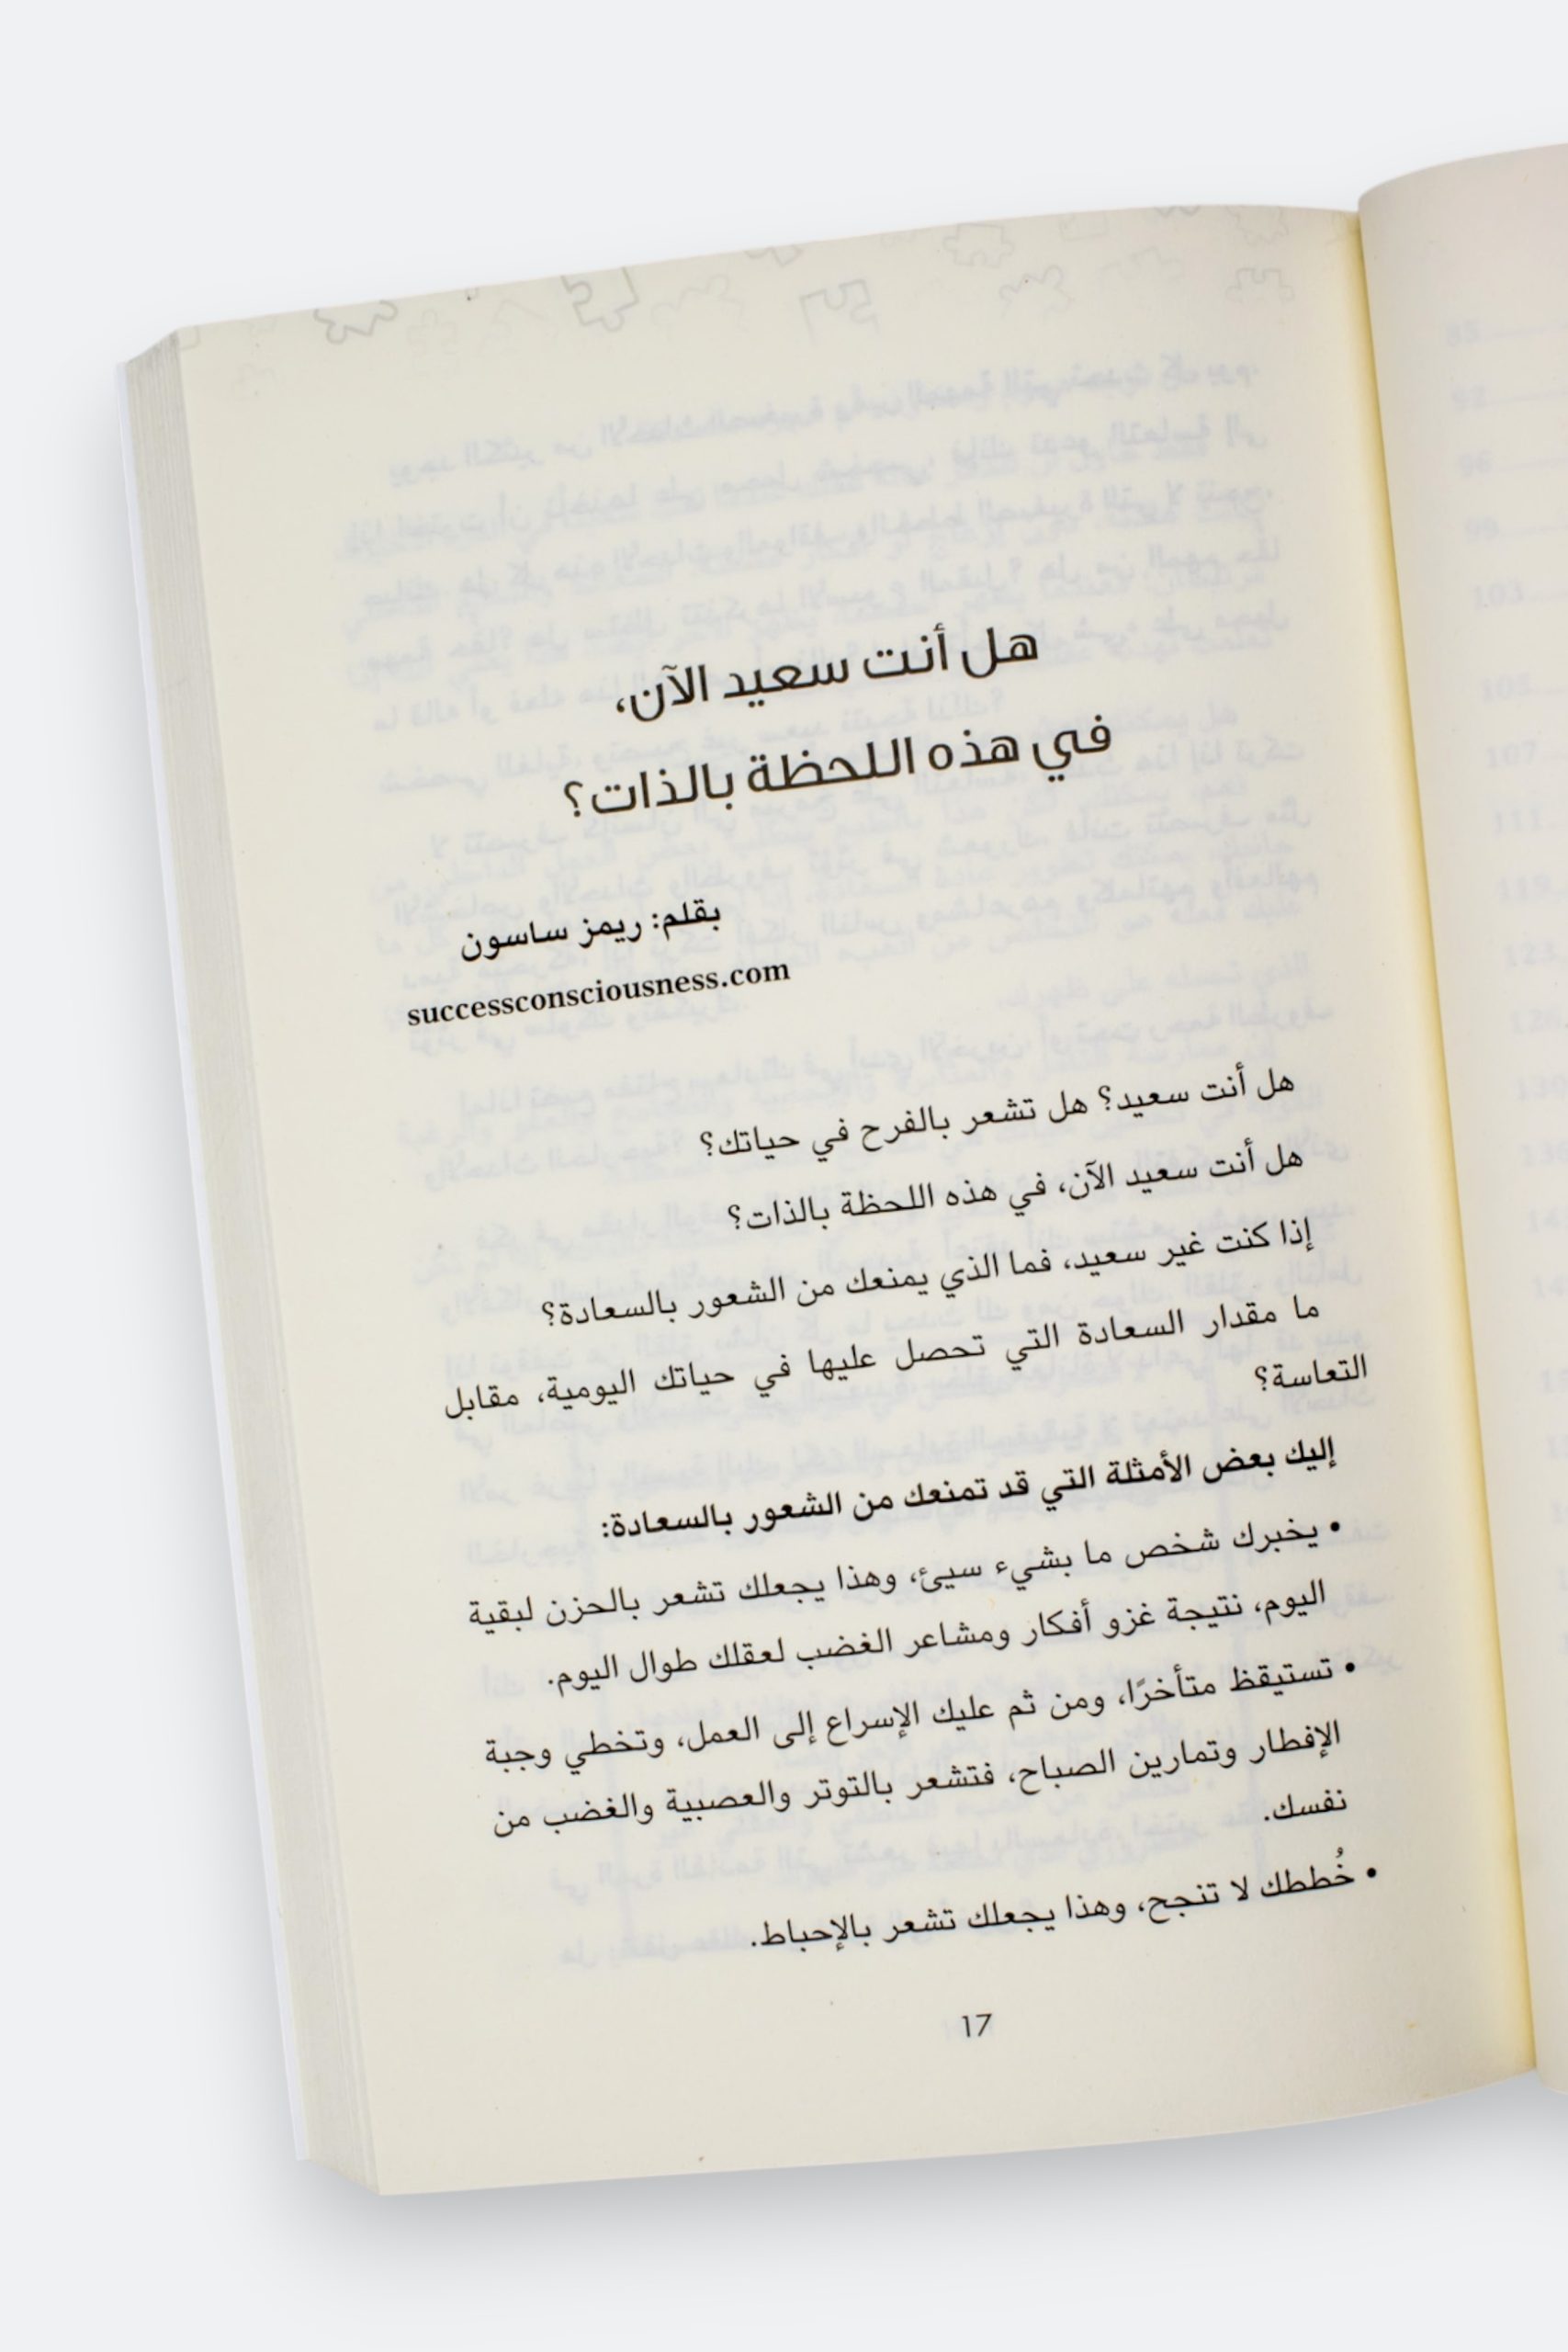 هل أنت سعيد الآن،
في هذه اللحظة بالذات؟
بقلم: ريمز ساسون
successconsciousness.com
هل أنت سعيد؟ هل تشعر بالفرح في حياتك؟
هل أنت سعيد الآن، في هذه اللحظة بالذات؟
إذا كنت غير سعيد، فما الذي يمنعك من الشعور بالسعادة؟
ما مقدار السعادة التي تحصل عليها في حياتك اليومية، مقابل
التعاسة؟
إليك بعض الأمثلة التي قد تمنعك من الشعور بالسعادة:
• يخبرك شخص ما بشيء سيئ، وهذا يجعلك تشعر بالحزن لبقية
اليوم، نتيجة غزو أفكار ومشاعر الغضب لعقلك طوال اليوم.
• تستيقظ متأخرًا، ومن ثم عليك الإسراع إلى العمل، وتخطي وجبة
الإفطار وتمارين الصباح، فتشعر بالتوتر والعصبية والغضب من
نفسك.
• خُططك لا تنجح، وهذا يجعلك تشعر بالإحباط.
17